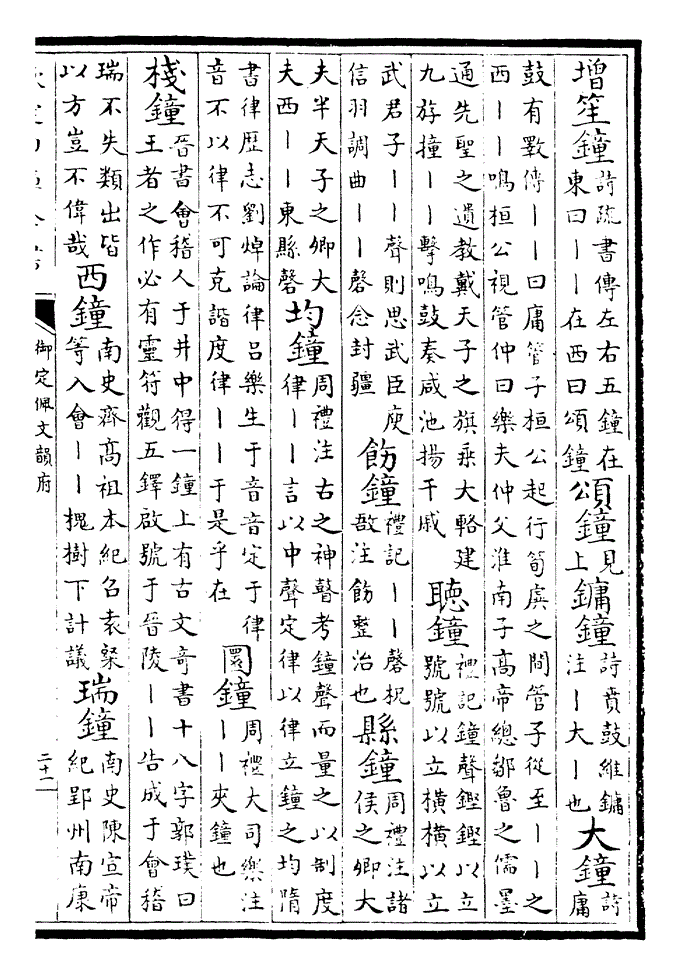 增笙鐘詩疏書傳左右五鐘在東曰丨丨在西曰頌鐘頌鐘見上鏞鐘詩賁鼓維鏞注丨大丨也大鐘詩庸
鼓有斁傳丨丨曰庸管子桓公起行筍虡之間管子從至丨丨之西丨丨鳴桓公視管仲曰樂夫仲父淮南子高帝總鄒魯之儒墨
通先聖之遺教戴天子之旗乘大輅建九斿撞丨丨擊鳴鼓奏咸池揚干戚聽鐘禮記鐘聲鏗鏗以立號號以立橫橫以立
武君子丨丨聲則思武臣庾信羽調曲丨丨磬念封疆飭鐘禮記丨丨磬柷敔注飭整治也縣鐘周禮注諸侯之卿大
夫半天子之卿大夫西丨丨東縣磬均鐘周禮注古之神瞽考鐘聲而量之以制度律丨丨言以中聲定律以律立鐘之均隋
書律歷志劉焯論律呂樂生于音音定于律音不以律不可克諧度律丨丨于是乎在圜鐘周禮大司樂注丨丨夾鐘也
棧鐘晉書會稽人于井中得一鐘上有古文奇書十八字郭璞曰王者之作必有靈符觀五鐸啟號于晉陵丨丨告成于會稽
瑞不失類出皆以方豈不偉哉西鐘南史齊高祖本紀召袁粲等入會丨丨槐樹下計議瑞鐘南史陳宣帝紀郢州南康
御定佩文韻府
二十二